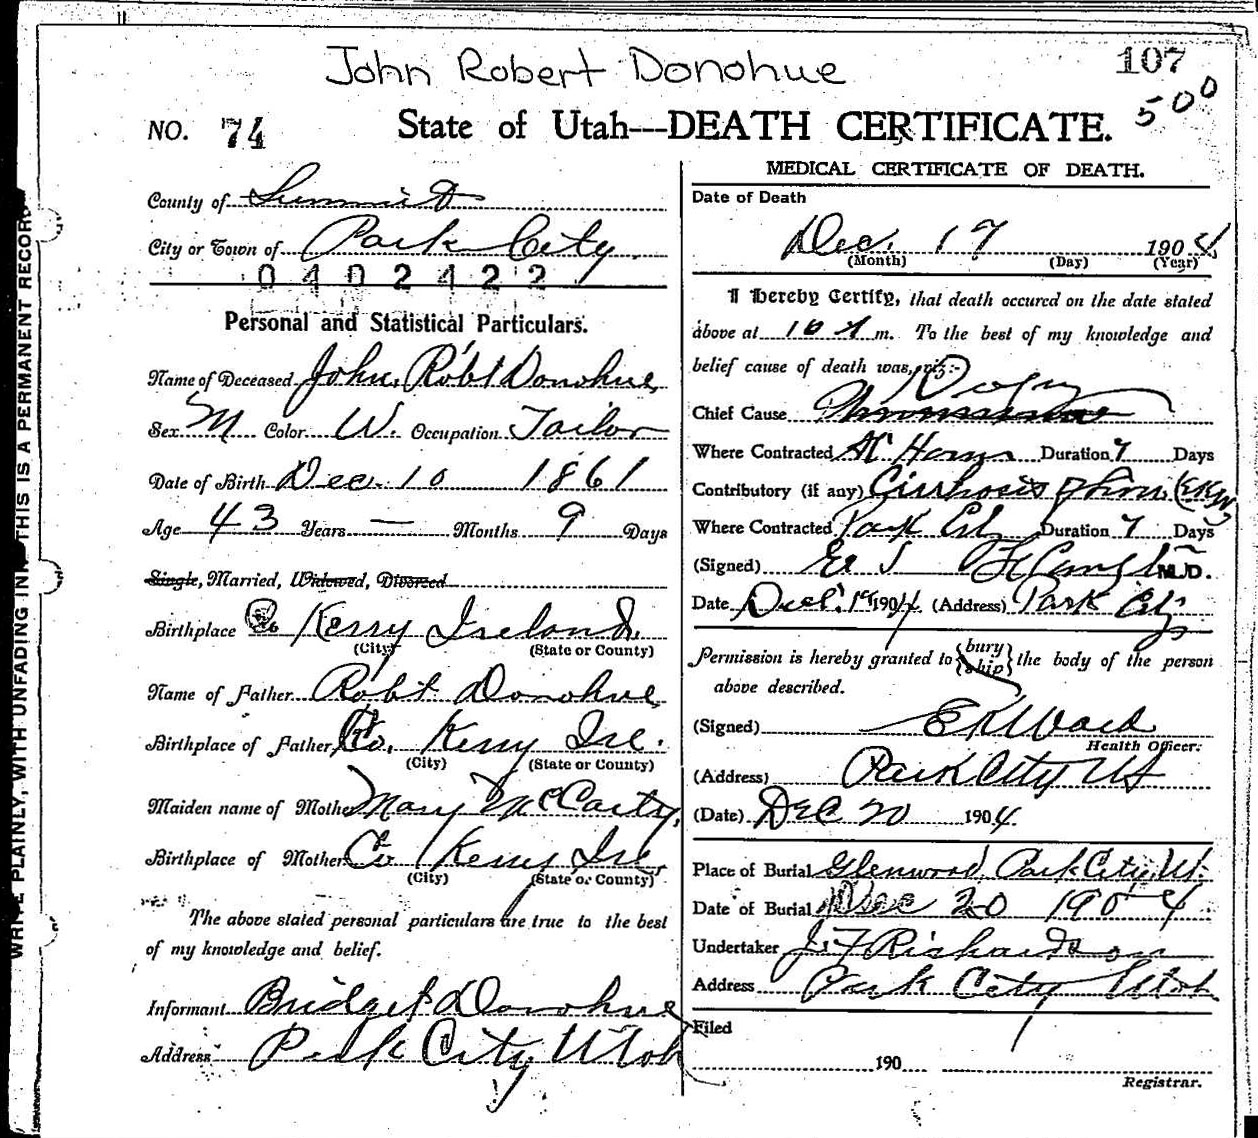 John Robert Donohue
107
500
NO. 74 State of Utah---DEATH CERTIFICATE.
WRITE PLAINLY, WITH UNFADING INK THIS IS A PERMANENT RECORD
County of Summit
City or Town of Park City
0402422
Personal and Statistical Particulars.
Name of Deceased John Robt Donohue
Sex M Color W. Occupation Tailor
Date of Birth Dec. 10 1861
Age 43 Years — Months 9 Days
Single, Married, Widowed, Divorced
Birthplace Co Kerry Ireland
(City) (State or County)
Name of Father Robt Donohue
Birthplace of Father Co. Kerry Ire.
(City) (State or County)
Maiden name of Mother Mary McCarty,
Birthplace of Mother Co Kerry Ire.
(City) (State or County)
The above stated personal particulars are true to the best
of my knowledge and belief.
Informant Bridget Donohue
Address Park City Utah
MEDICAL CERTIFICATE OF DEATH.
Date of Death
Dec. 17 1904
(Month) (Day) (Year)
I Hereby Certify, that death occured on the date stated
above at 10 A m. To the best of my knowledge and
belief cause of death was, viz:-
Chief Cause
Where Contracted At Home Duration 7 Days
Contributory (if any) Cirrhosis (EKW)
Where Contracted Park City Duration 7 Days
(Signed) M.D.
Date Dec. 19 1904. (Address) Park City
Permission is hereby granted to {bury ship} the body of the person
above described.
(Signed) EKWard
Health Officer.
(Address) Park City Ut
(Date) DEC 20 1904.
Place of Burial Glenwood, Park City, Ut.
Date of Burial Dec 20 1904
Undertaker J.F Richardson
Address Park City Utah
Filed
190
Registrar.